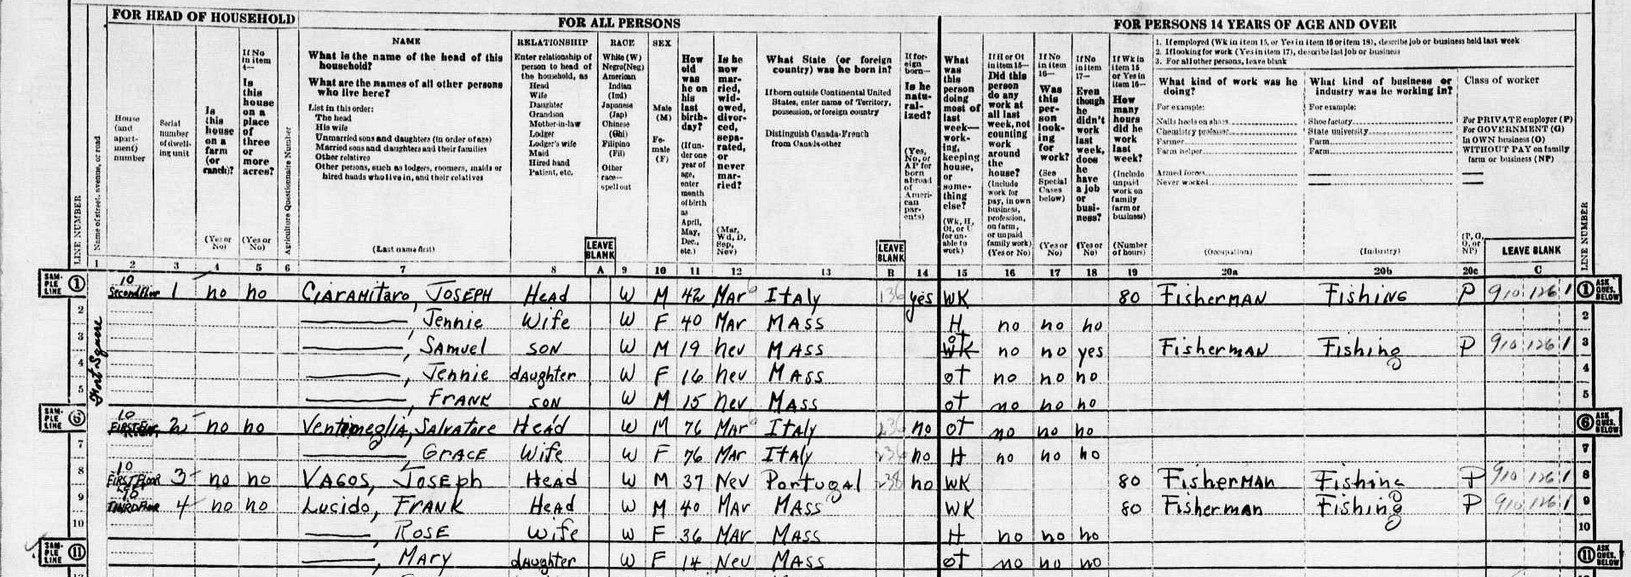 FOR HEAD OF HOUSEHOLD
FOR ALL PERSONS
FOR PERSONS 14 YEARS OF AGE AND OVER
LINE NUMBER
Name of street, avenue, or road
House (and apartment) number
Serial number of dwelling unit
Is this house on a farm (or ranch)?
(Yes or No)
If No in item 4—
Is this house on a place of three or more acres?
(Yes or No)
Agriculture Questionnaire Number
NAME
What is the name of the head of this household?
What are the names of all other persons who live here?
List in this order:
The head
His wife
Unmarried sons and daughters (in order of age)
Married sons and daughters and their families
Other relatives
Other persons, such as lodgers, roomers, maids or hired hands who live in, and their relatives
(Last name first)
RELATIONSHIP
Enter relationship of person to head of the household, as
Head
Wife
Daughter
Grandson
Mother-in-law
Lodger
Lodger's wife
Maid
Hired hand
Patient, etc.
LEAVE BLANK
RACE
White (W)
Negro (Neg)
American Indian (Ind)
Japanese (Jap)
Chinese (Chi)
Filipino (Fil)
Other race—spell out
SEX
Male (M)
Female (F)
How old was he on his last birthday?
(If under one year of age, enter month of birth as April, May, Dec., etc.)
Is he now married, widowed, divorced, separated, or never married?
(Mar, Wd, D, Sep, Nev)
What State (or foreign country) was he born in?
If born outside Continental United States, enter name of Territory, possession, or foreign country
Distinguish Canada-French from Canada-other
LEAVE BLANK
If foreign born—
Is he naturalized?
(Yes, No, or AP for born abroad of American parents)
What was this person doing most of last week—working, keeping house, or something else?
(Wk, H, Ot, or U for unable to work)
If H or Ot in item 15—
Did this person do any work at all last week, not counting work around the house?
(Include work for pay, in own business, profession, on farm, or unpaid family work)
(Yes or No)
If No in item 16—
Was this person looking for work?
(See Special Cases below)
(Yes or No)
If No in item 17—
Even though he didn't work last week, does he have a job or business?
(Yes or No)
If Wk in item 15 or Yes in item 16—
How many hours did he work last week?
(Include unpaid work on family farm or business)
(Number of hours)
1. If employed (Wk in item 15, or Yes in item 16 or item 18), describe job or business held last week
2. If looking for work (Yes in item 17), describe last job or business
3. For all other persons, leave blank
What kind of work was he doing?
For example:
Nails heels on shoes
Chemistry professor
Farmer
Farm helper
Armed forces
Never worked
(Occupation)
What kind of business or industry was he working in?
For example:
Shoe factory
State university
Farm
Farm
(Industry)
Class of worker
For PRIVATE employer (P)
For GOVERNMENT (G)
In OWN business (O)
WITHOUT PAY on family farm or business (NP)
(P, G, O, or NP)
LEAVE BLANK
LINE NUMBER
1 2 3 4 5 6 7 8 A 9 10 11 12 13 B 14 15 16 17 18 19 20a 20b 20c C
Fort Square
SAMPLE LINE 1 10 Second Floor 1 no no Ciaramitaro, Joseph Head W M 42 Mar Italy 136 yes WK 80 Fisherman Fishing P 910 126 1 1 ASK QUES. BELOW
2 ——, Jennie Wife W F 40 Mar Mass H no no no 2
3 ——, Samuel son W M 19 Nev Mass WK ot no no yes Fisherman Fishing P 910 126 1 3
4 ——, Jennie daughter W F 16 Nev Mass ot no no no 4
5 ——, Frank son W M 15 Nev Mass ot no no no 5
SAMPLE LINE 6 10 First Floor 2 no no Ventimeglia, Salvatore Head W M 76 Mar Italy 136 no ot no no no 6 ASK QUES. BELOW
7 ——, Grace Wife W F 76 Mar Italy 136 no H no no no 7
8 10 First Floor 3 no no Vagos, Joseph Head W M 37 Nev Portugal 238 no WK 80 Fisherman Fishing P 910 126 1 8
9 10 Third Floor 4 no no Lucido, Frank Head W M 40 Mar Mass WK 80 Fisherman Fishing P 910 126 1 9
10 ——, Rose Wife W F 36 Mar Mass H no no no 10
SAMPLE LINE 11 ——, Mary daughter W F 14 Nev Mass ot no no no 11 ASK QUES. BELOW